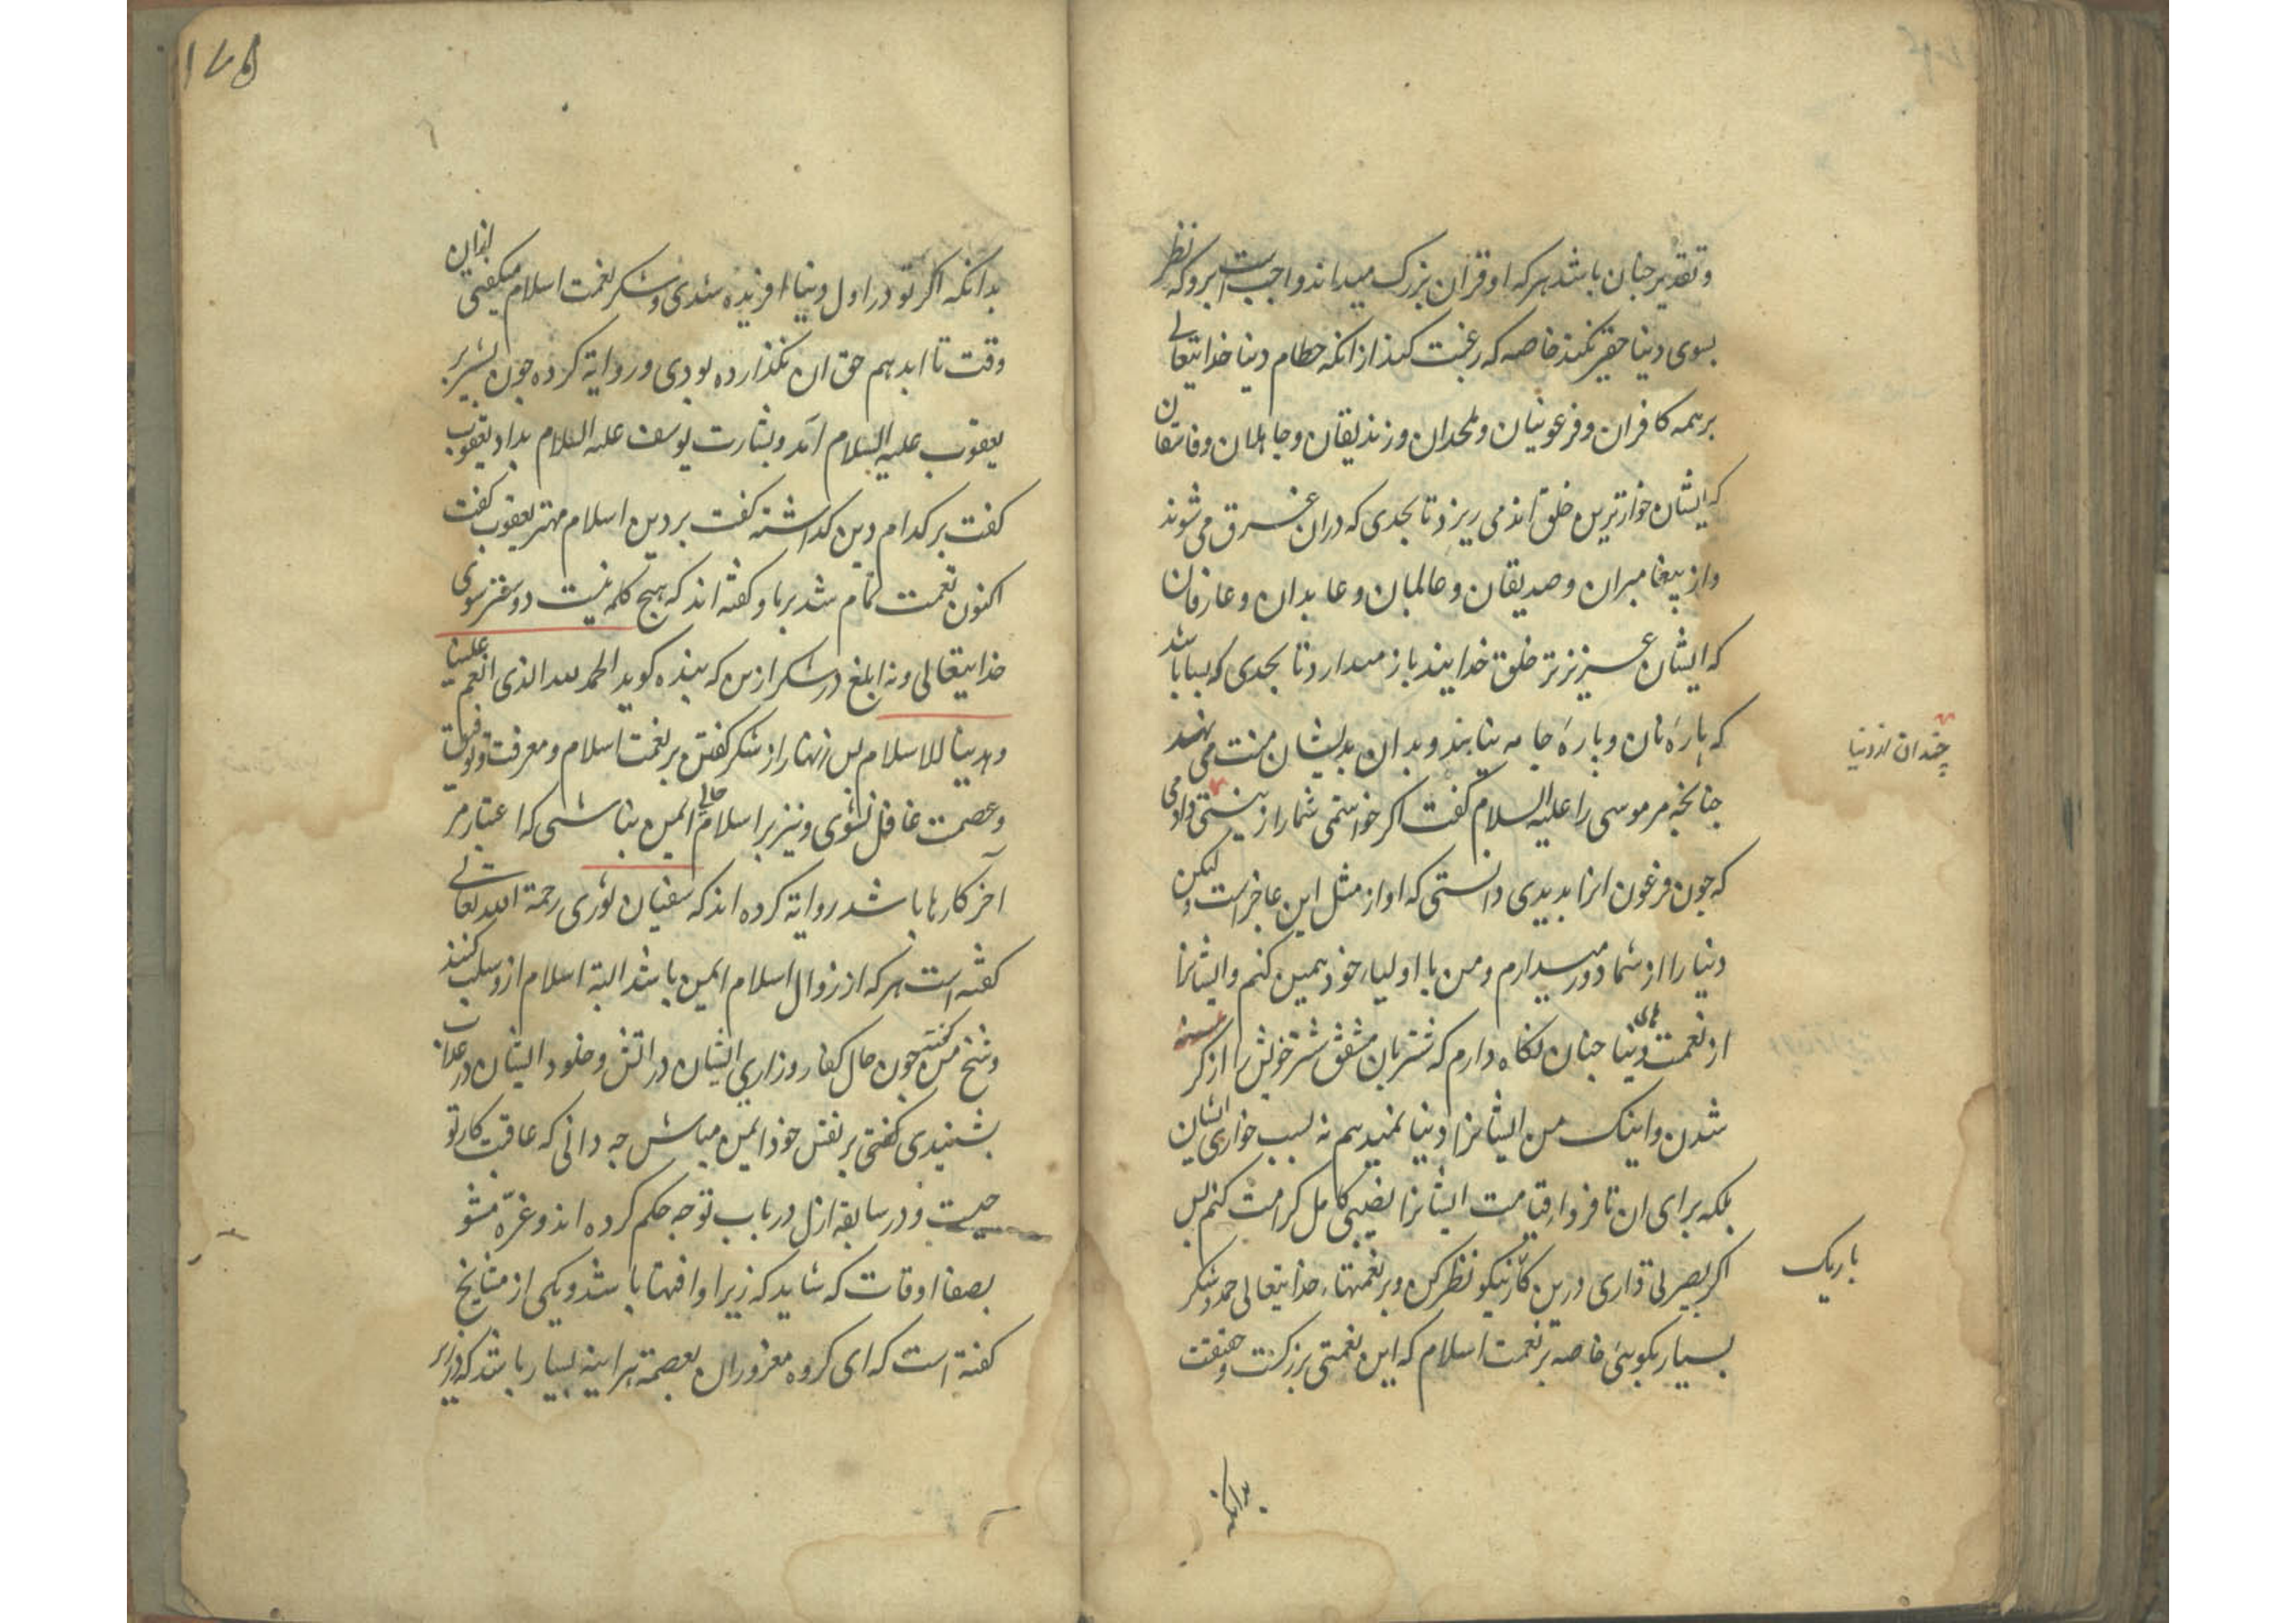 وتقدیر جنان باشد هرکه او قران بزرک میداند واجب است برو که نظر
بسوی دنیا حقیر نکند خاصه که رغبت کند از انکه حطام دنیا خدایتعالی
برهمه کافران وفرعونیان وملحدان وزندیقان وجاهلان وفاسقان
که ایشان خوارترین خلق اند می ریزد تا بحدی که دران غرق می شوند
واز پیغامبران وصدیقان وعالمان وعابدان وعارفان
که ایشان عزیزتر خلق خدایند باز میدارد تا بحدی که بسا باشد
که پارهٔ نان وپارهٔ جامه نیابند وبدان بدیشان منت می نهند
چندان از دنیا
جنانچه مر موسی را علیه السلام گفت اکر خواستمی شما را زینتی دادمی
که جون فرعون انرا بدیدی دانستی که او از مثل این عاجز است ولیکن
دنیا را از شما دور میدارم ومن با اولیاء خود همین کنم وایشانرا
از نعمت دنیا جنان نکاه دارم که شتربان مشفق شتر خویش را از کر
شدن واینک من ایشانرا دنیا نمیدهم نه بسبب خواری ایشان
بلکه برای ان تا فرداء قیامت ایشانرا نصیبی کامل کرامت کنم پس
باریک
اکر بصرلی داری درین کار نیکو نظر کن وبر نعمتهاء خدایتعالی حمد وشکر
بسیار بکویی خاصه بر نعمت اسلام که این نعمتی بزرکست وحقیقت
بدانکه
۱۷۵
بدانکه اکر تو در اول دنیا افریده شدی وشکر نعمت اسلام میکفتی ازان
وقت تا ابد هم حق ان نکذارده بودی وروایة کرده جون بشیر بر
یعقوب علیه السلام آمد وبشارت یوسف علیه السلام بداد یعقوب
کفت بر کدام دین کداشته کفت بر دین اسلام مهتر یعقوب کفت
اکنون نعمت تمام شد برما وکفته اند که هیچ کلمه نیست دوستر سوی
خدایتعالی ونه ابلغ در شکر ازین که بنده کوید الحمد لله الذی انعم علینا
وهدینا للاسلام پس زنهار از شکر کفتن بر نعمت اسلام ومعرفت وتوفیق
وعصمت غافل نشوی ونیز بر اسلام حالی ایمن نباشی که اعتبار مر
آخر کارها باشد روایة کرده اند که سفیان ثوری رحمة الله تعالی
کفته است هرکه از زوال اسلام ایمن باشد البتة اسلام ازو سلب کنند
وشیخ من کفتی جون حال کفار وزاری ایشان در اتش وخلود ایشان در عذاب
بشنیدی کفتی بر نفس خود ایمن مباش جه دانی که عاقبت کار تو
جیست ودر سابقه ازل در باب تو جه حکم کرده اند وغره مشو
بصفا اوقات که شاید که زیر او افتها باشد ویکی از مشایخ
کفته است که ای کروه مغروران بعصمة هراینه بسیار باشد که در زیر